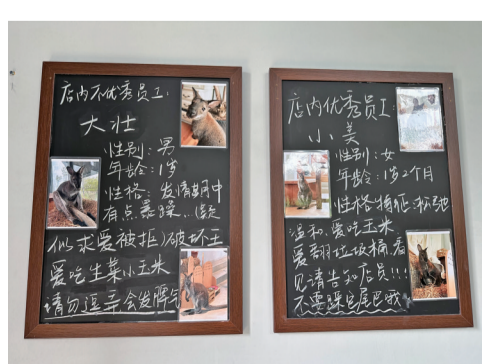 店内不优秀员工:
大壮
性别:男
年龄:1岁
性格:发情期中
有点暴躁...(疑
似求爱被拒)破坏王
爱吃生菜小玉米
请勿逗弄会发脾气
店内优秀员工
小美
性别:女
年龄:1岁2个月
性格特征:松弛
温和.爱吃玉米
爱翻垃圾桶.看
见请告知店员!!!
不要踩它尾巴哦